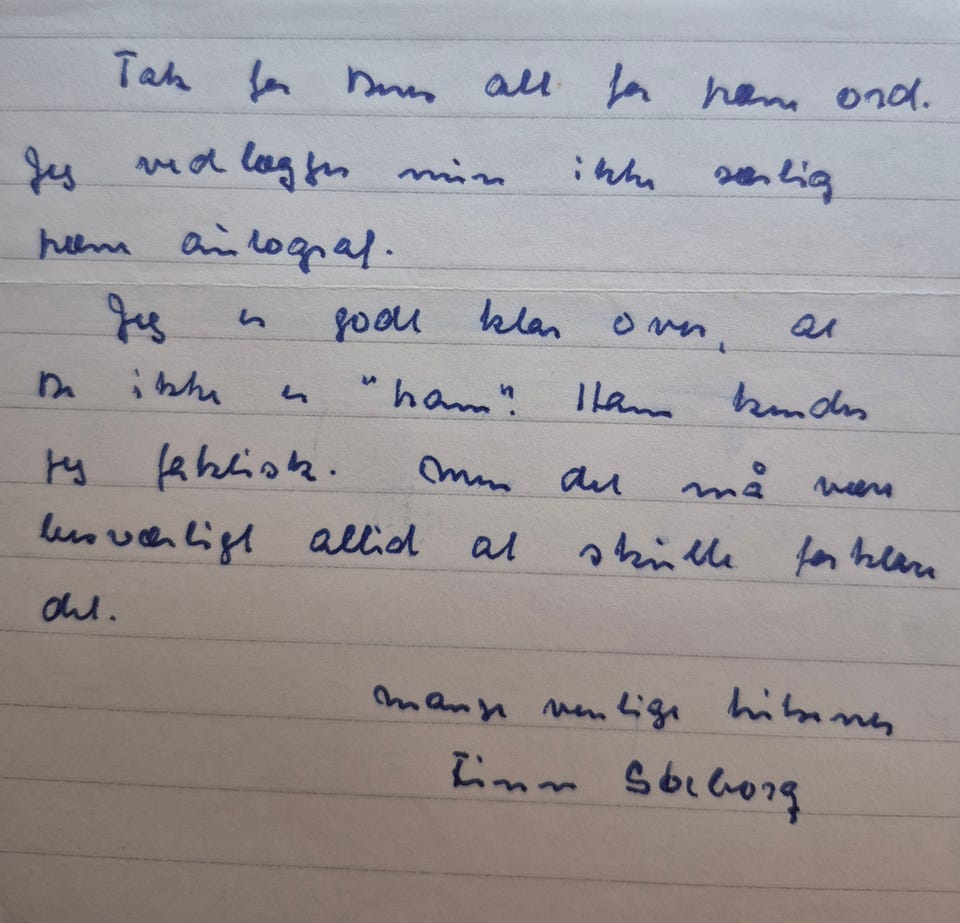 Tak for Deres alt for pæne ord.
Jeg vedlægger min ikke særlig
pæne autograf.
Jeg er godt klar over, at
De ikke er "ham". Ham kender
jeg faktisk. Men det må være
besværligt altid at skulle forklare
det.
Mange venlige hilsener
Finn Søeborg